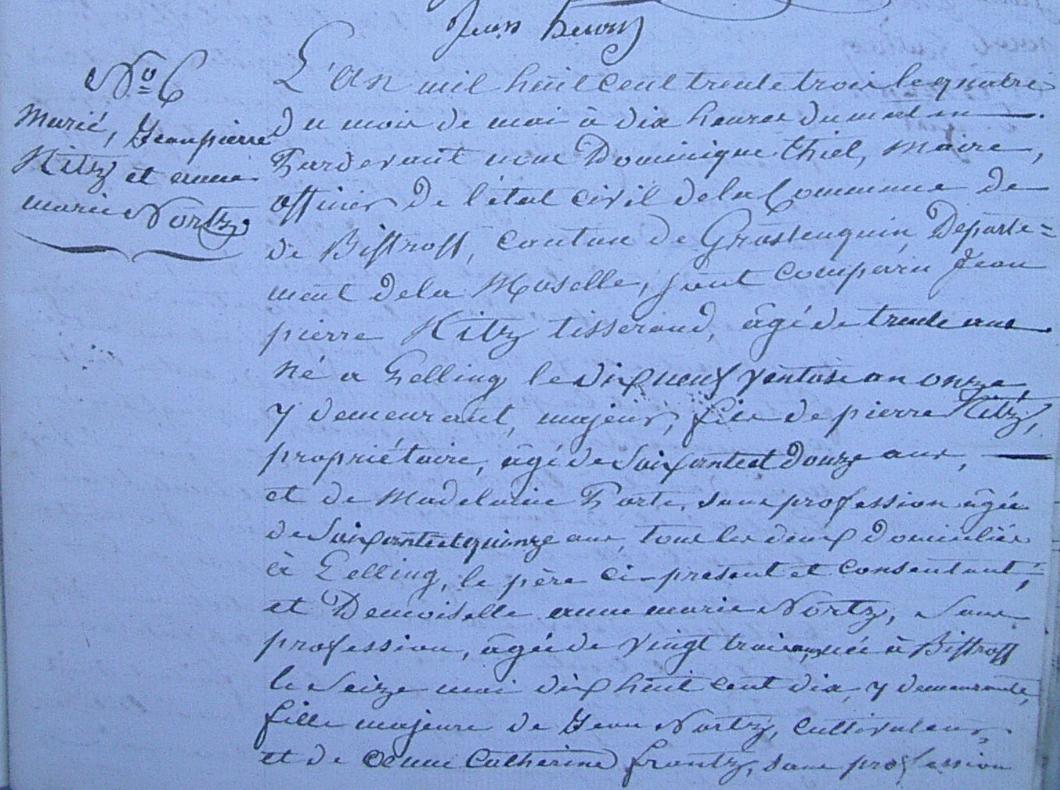 Jean
N° 6
Marié, Jeanpierre
Kitz et anne
marie Nortz
L'an mil huit cent trente trois le quatre
du mois de mai à dix heures du matin
Pardevant nous Dominique thiel, Maire,
officier de l'état civil de la Commune de
de Bistroff, canton de Grostenquin, Departe=
ment dela Moselle, sont comparu Jean
pierre Kitz tisserand, âgé de trente ans
né a Zelling le dix neuf ventose an onze
y demeurant, majeur, fils de pierre Kitz,
propriétaire, âgé de soixante et douze ans,
et de Madelaine Porte, sans profession âgée
de soixante et quinze ans, tous les deux domiciliés
à Zelling, le père ci-present et consentant,
et Demoiselle anne marie Nortz, Sans
profession, âgée de vingt trois ans, née à Bistroff
le Seize mai dix huit cent dix, y demeurante,
fille majeure de Jean Nortz, cultivateur,
et de anne Catherine frantz, sans profession